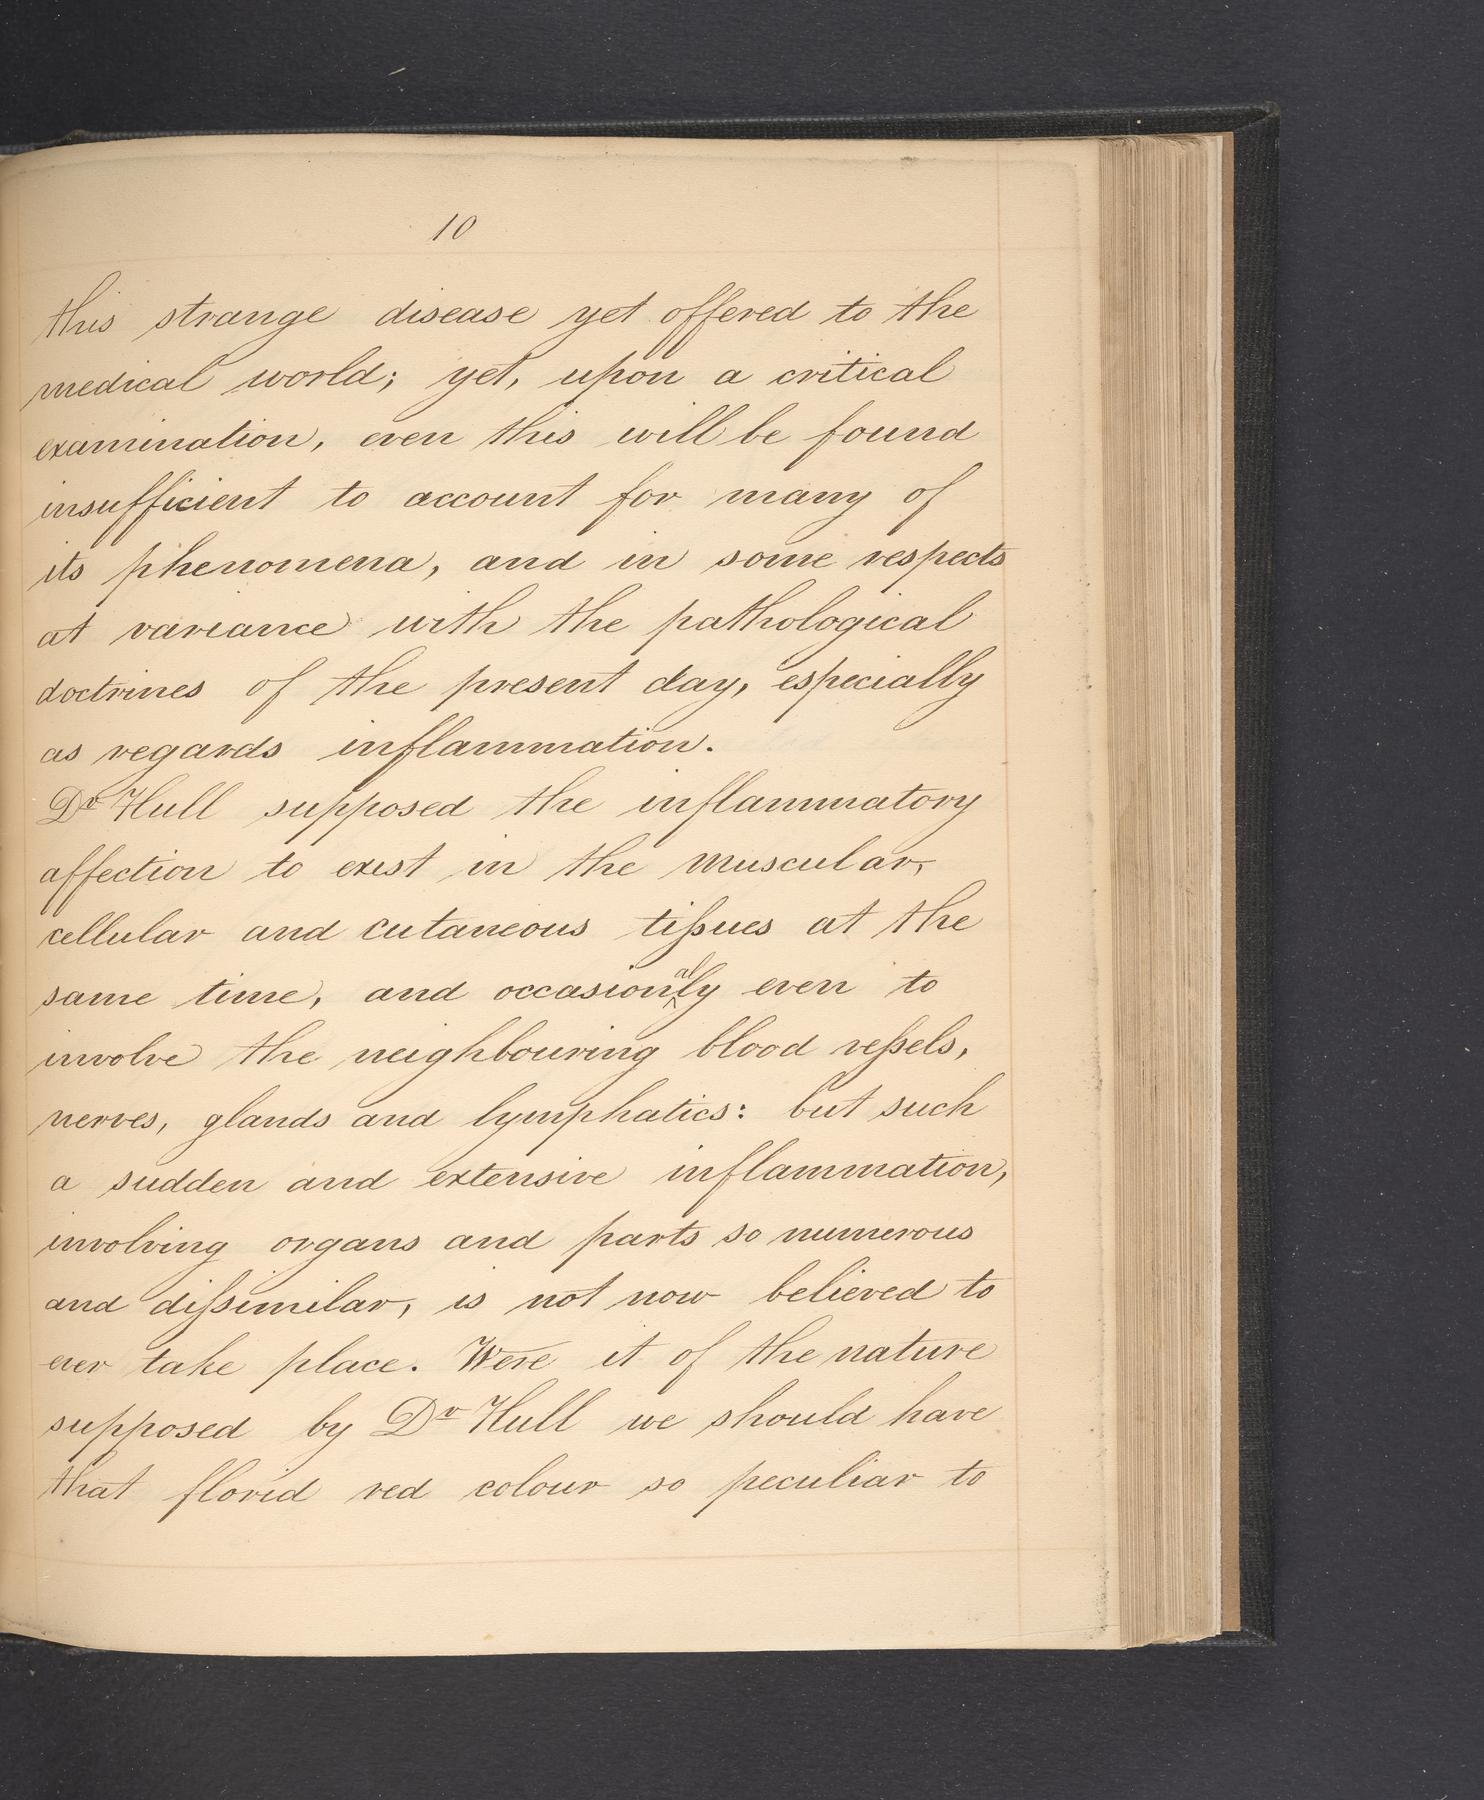 10
this strange disease yet offered to the
medical world; yet, upon a critical
examination, even this will be found
insufficient to account for many of
its phenomena, and in some respects
at variance with the pathological
doctrines of the present day, especially
as regards inflammation.
Dr Hull supposed the inflammatory
affection to exist in the muscular,
cellular and cutaneous tißues at the
same time, and occasionally even to
involve the neighbouring blood veßels,
nerves, glands and lymphatics: but such
a sudden and extensive inflammation,
involving organs and parts so numerous
and dißimilar, is not now believed to
ever take place. Were it of the nature
supposed by Dr Hull we should have
that florid red colour so peculiar to